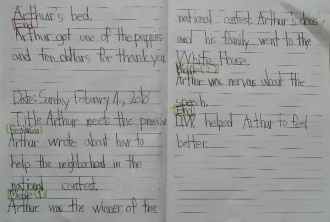 Arthur's bed.
End
Arthur got one of the puppies
and ten dollars for thank you
Date: Sunday Febuary 4, 2018
Title Arthur meets the president
Beginning
Arthur wrote about how to
help the neighborhood in the
national contest.
Middle 1
Arthur was the winner of the
national contest. Arthur's class
and his family went to the
White House.
Middle 2
Arthur was nervous about the
speech.
End
D.W. helped Arthur to feel
better.